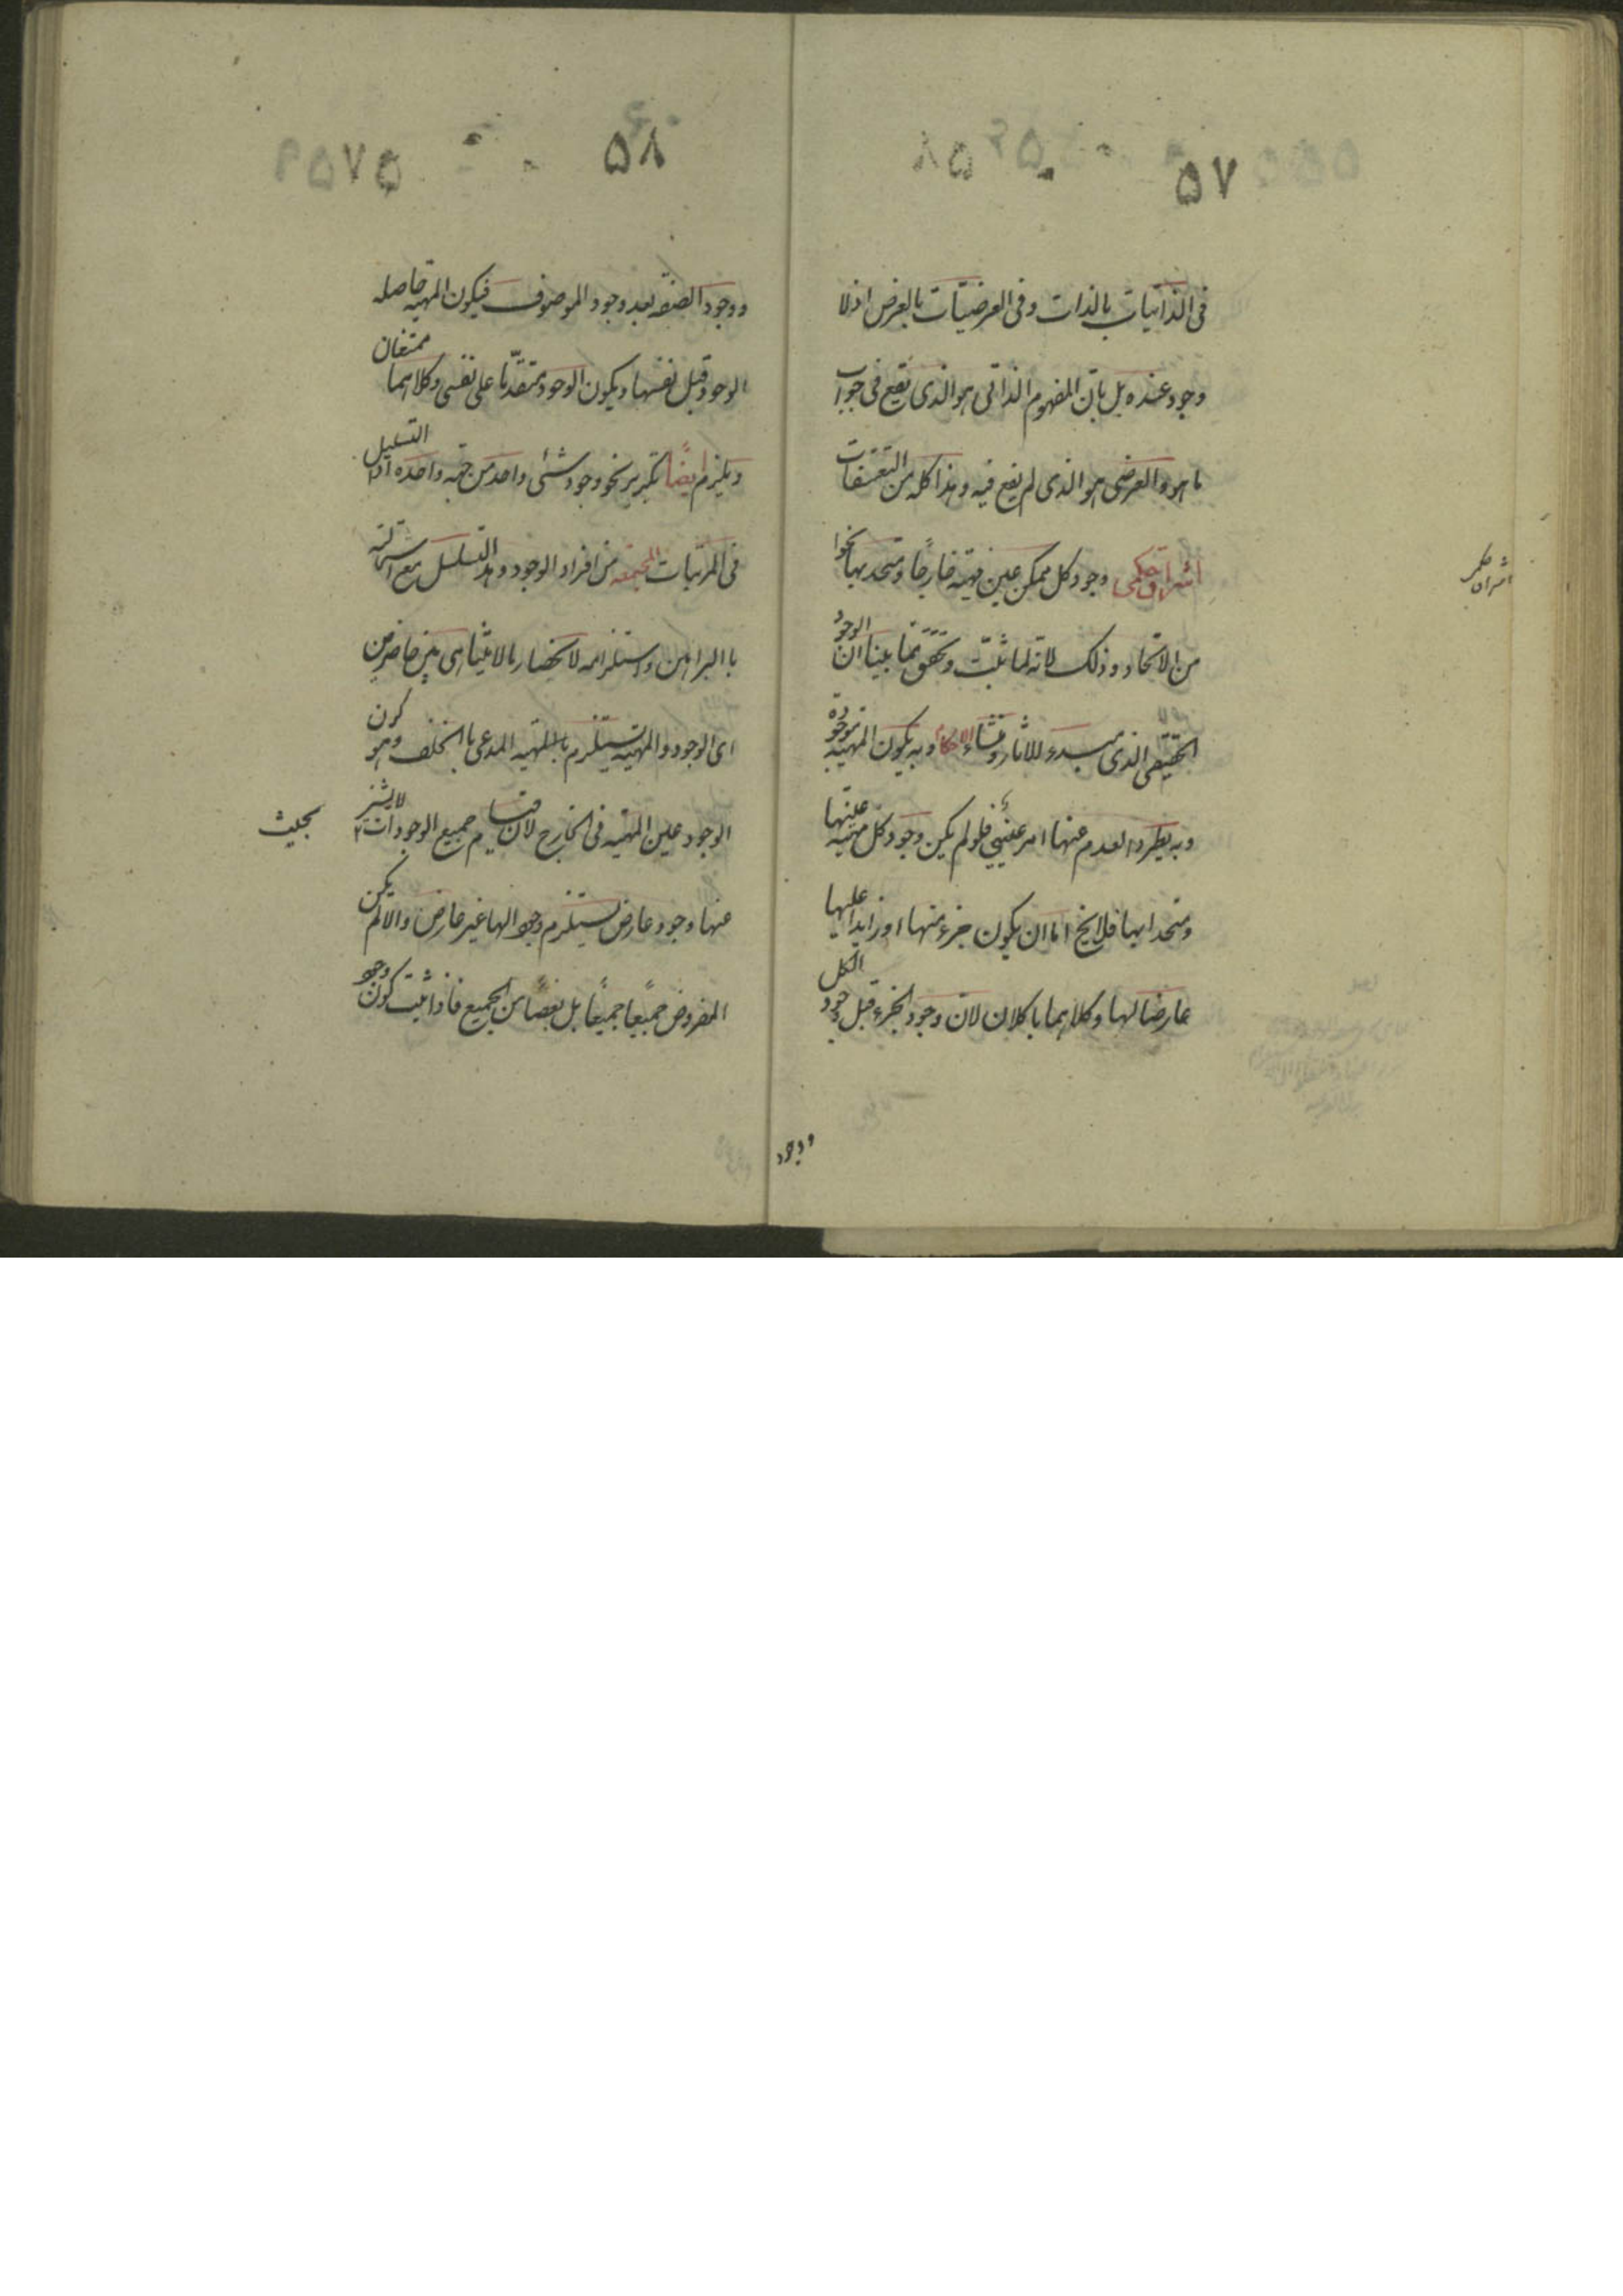 ٥٧
فى الذاتيات بالذات وفى العرضيّات بالعرض اذ لا
وجود عنده بل بانّ المفهوم الذاتى هو الذى يقع فى جواب
ما هو والعرضى هو الذى لم يقع فيه وهذا كله من التعسّفات
اشراق حكمى وجود كل ممكن عين مهيته خارجًا ومتحد بها نحوا
من الاتحاد وذلك لانه لما ثبت وتحقق بما بينا انّ الوجود
الحقيقى الذى مبدء للاثار ومنشاء الاحكام وبه يكون المهيّه موجودة
وبه يطرد العدم عنها امر عينى فلو لم يكن وجود كل مهيّه عينها
ومتحدا بها فلا يخ اما ان يكون جزء منها او زايدا عليها
عارضا لها وكلاهما باطلان لانّ وجود الجزء قبل وجود الكل
ووجود
٥٨
ووجود الصفه بعد وجود الموصوف فيكون المهيه حاصله
الوجود قبل نفسها ويكون الوجود متقدّما على نفسه وكلاهما ممتنعان
ويلزم ايضًا تكرير نحو وجود شئ واحد من جهه واحده او التسلسل
فى المرتبات المجتمعه من افراد الوجود وهذا التسلسل مع استحالته
با البراهين واستلزامه لانحصار ما لا يتناهى بين حاصرين
اى الوجود والمهيّه يستلزم المدعى با الخلف وهو كون
الوجود عين المهيّه فى الخارج لان قيام جميع الوجودات
بحيث لا يشذ
عنها وجود عارض يستلزم وجودا لها غير عارض والا لم يكن
المفروض جميعًا جميعًا بل بعضًا من الجميع فاذا ثبت كون وجود